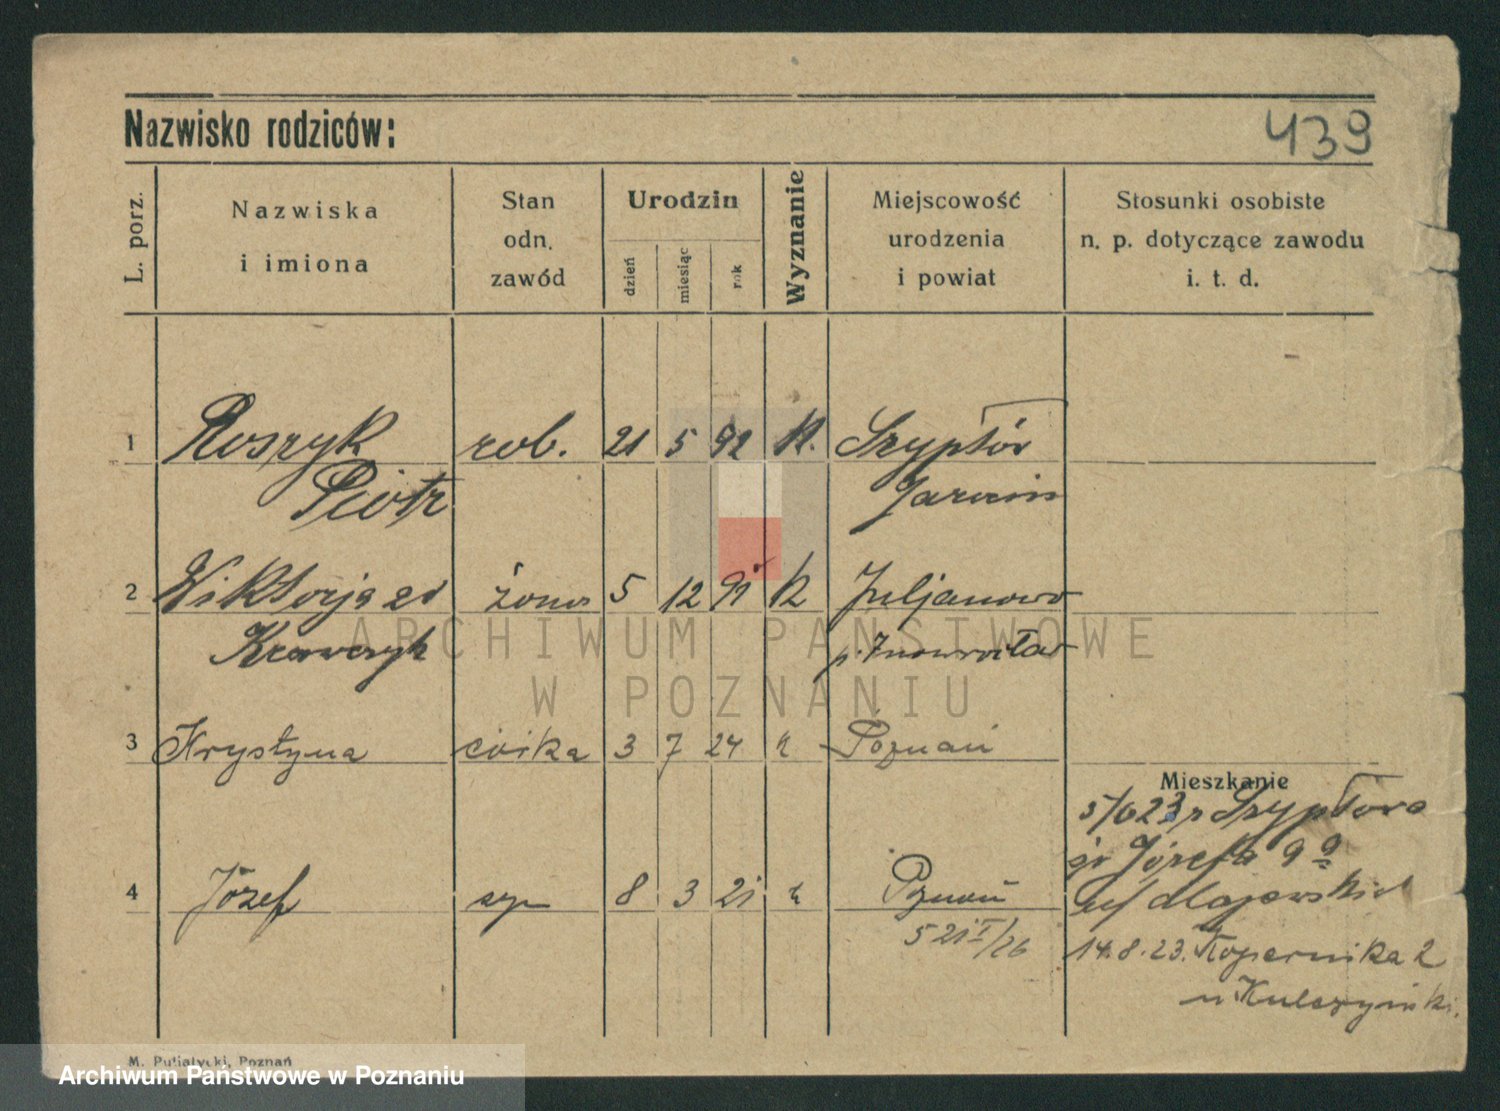 Nazwisko rodziców:
439
L. porz.
Nazwiska
i imiona
Stan
odn.
zawód
Urodzin
dzień
miesiąc
rok
Wyznanie
Miejscowość
urodzenia
i powiat
Stosunki osobiste
n. p. dotyczące zawodu
i. t. d.
1 Roszyk rob. 21 5 92 k. Szypłów
Piotr Jarocin
2 Wiktorja żona 5 12 91 k Juljanowo
Krawczyk p. Inowrocław
ARCHIWUM PAŃSTWOWE
W POZNANIU
3 Krystyna córka 3 7 24 k Poznań
Mieszkanie
5/6 23 z Szypłowa
Józefa 9
4 Józef syn 8 3 21 k Poznań
Majewskich
14.8.23. Kopernika 2
u Kulczyński.
M. Putiatycki, Poznań
Archiwum Państwowe w Poznaniu